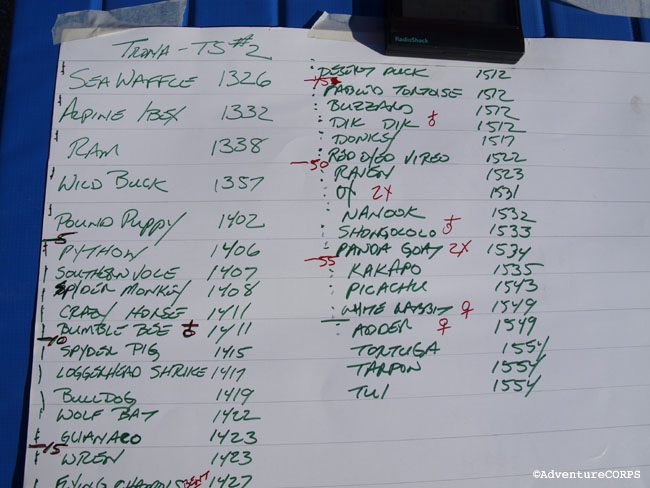 RadioShack
TRONA - TS #2
SEA WAFFLE 1326
ALPINE IBEX 1332
RAM 1338
WILD BUCK 1357
POUND PUPPY 1402
-5
PYTHON 1406
SOUTHERN VOLE 1407
SPYDER MONKEY 1408
CRAZY HORSE 1411
BUMBLE BEE 1411
-10
SPYDER PIG 1415
LOGGERHEAD SHRIKE 1417
BULLDOG 1419
WOLF BAT 1422
GUANACO 1423
-15
WREN 1423
FLYING BENT 1427
DESERT DUCK 1512
TORTOISE 1512
BUZZARD 1512
DIK DIK ♀ 1512
DONKEY 1517
-50
RED EYED VIREO 1522
RAVEN 1523
OX 2X 1531
NANOOK 1532
SHONGOLOLO ♀ 1533
PANDA GOAT 2X 1534
-55
KAKAPO 1535
PICACHU 1543
WHITE RABBIT ♀ 1549
ADDER ♀ 1549
TORTUGA 1554
TARPON 1554
TUI 1554
©AdventureCORPS